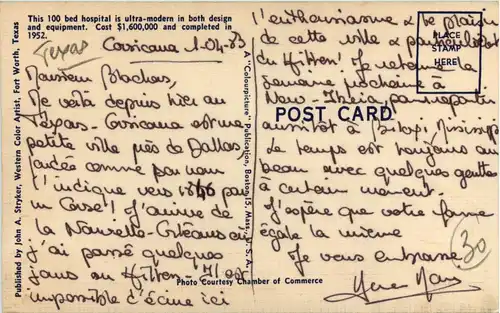 This 100 bed hospital is ultra-modern in both design
and equipment. Cost $1,600,000 and completed in
1952.
Texas
Corsicana 1-04-83
Monsieur
Me voilà depuis hier au
Texas - Corsicana est une
petite ville près de Dallas,
fondée comme son nom
l'indique vers 18 par
un Corse! J'arrive de
la Nouvelle-Orléans où
j'ai passé quelques
jours au Hilton - Il est
impossible d'écrire ici
l'enthousiasme & le plaisir
de cette ville & particulièrement
du Hilton! Je retourne la
semaine prochaine à
New-Iberia pour repartir
aussitôt à Biloxi, Mississipi
Le temps est toujours au
beau avec quelques gouttes
à certain moment.
J'espère que votre forme
égale la mienne
Je vous embrasse
30
PLACE
STAMP
HERE
POST CARD
Published by John A. Stryker, Western Color Artist, Fort Worth, Texas
A "Colourpicture" Publication, Boston 15, Mass., U.S.A.
Photo Courtesy Chamber of Commerce